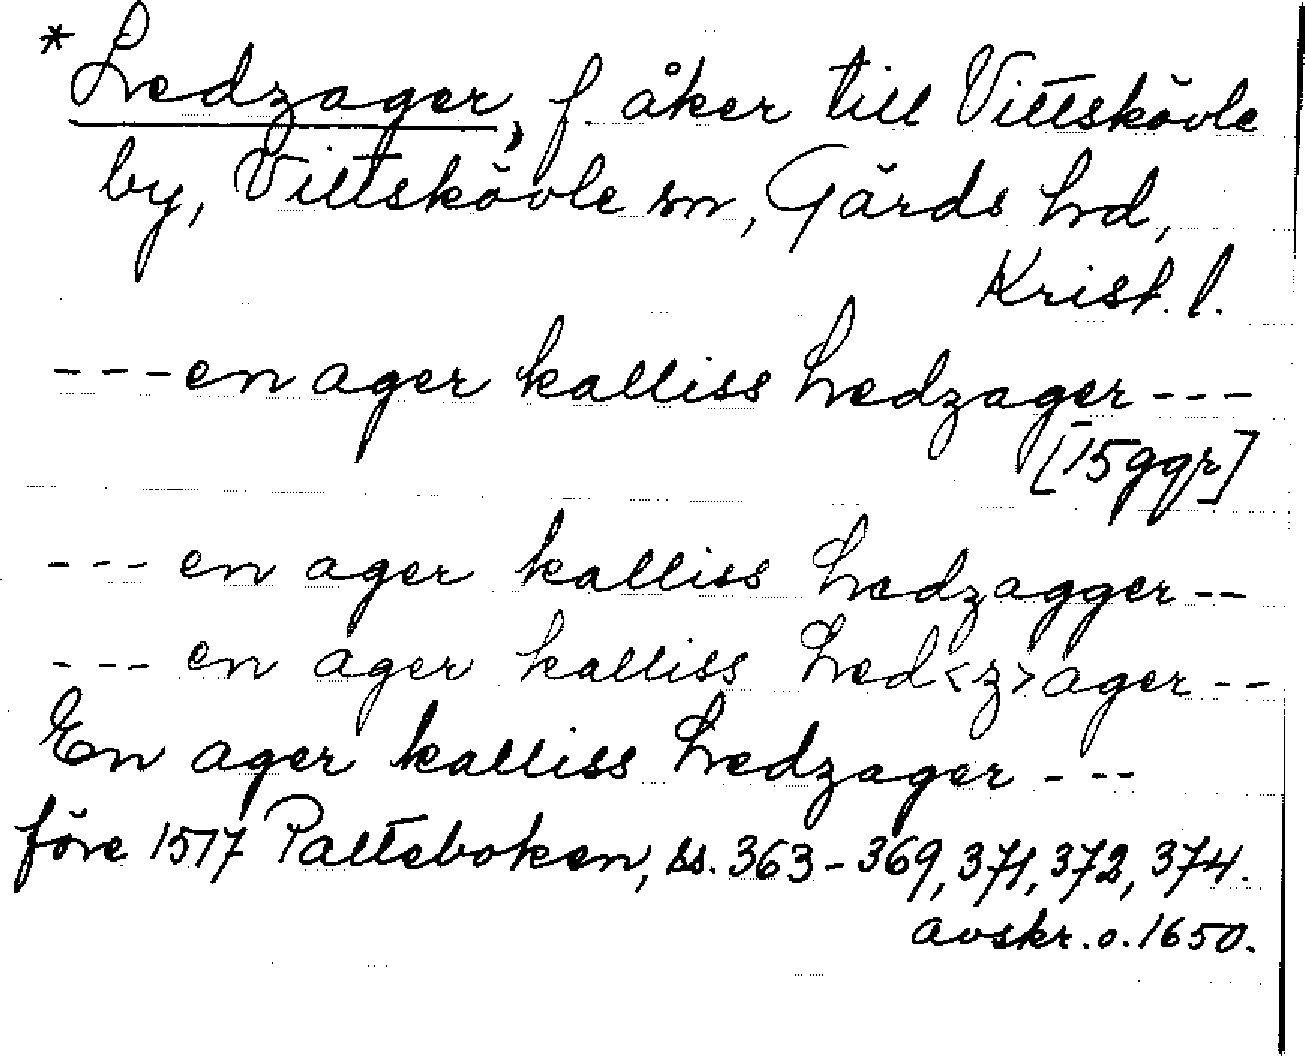 *Ledzager, f. åker till Vittskövle
by, Vittskövle sn, Gärds hd,
Krist. l.
---en ager kalliss Ledzager---
[15 ggr]
---en ager kalliss Ledzagger--
---en ager kalliss Led<z>ager--
En ager kalliss Ledzager---
före 1517 Palteboken, ss. 363-369, 371, 372, 374.
avskr. o. 1650.